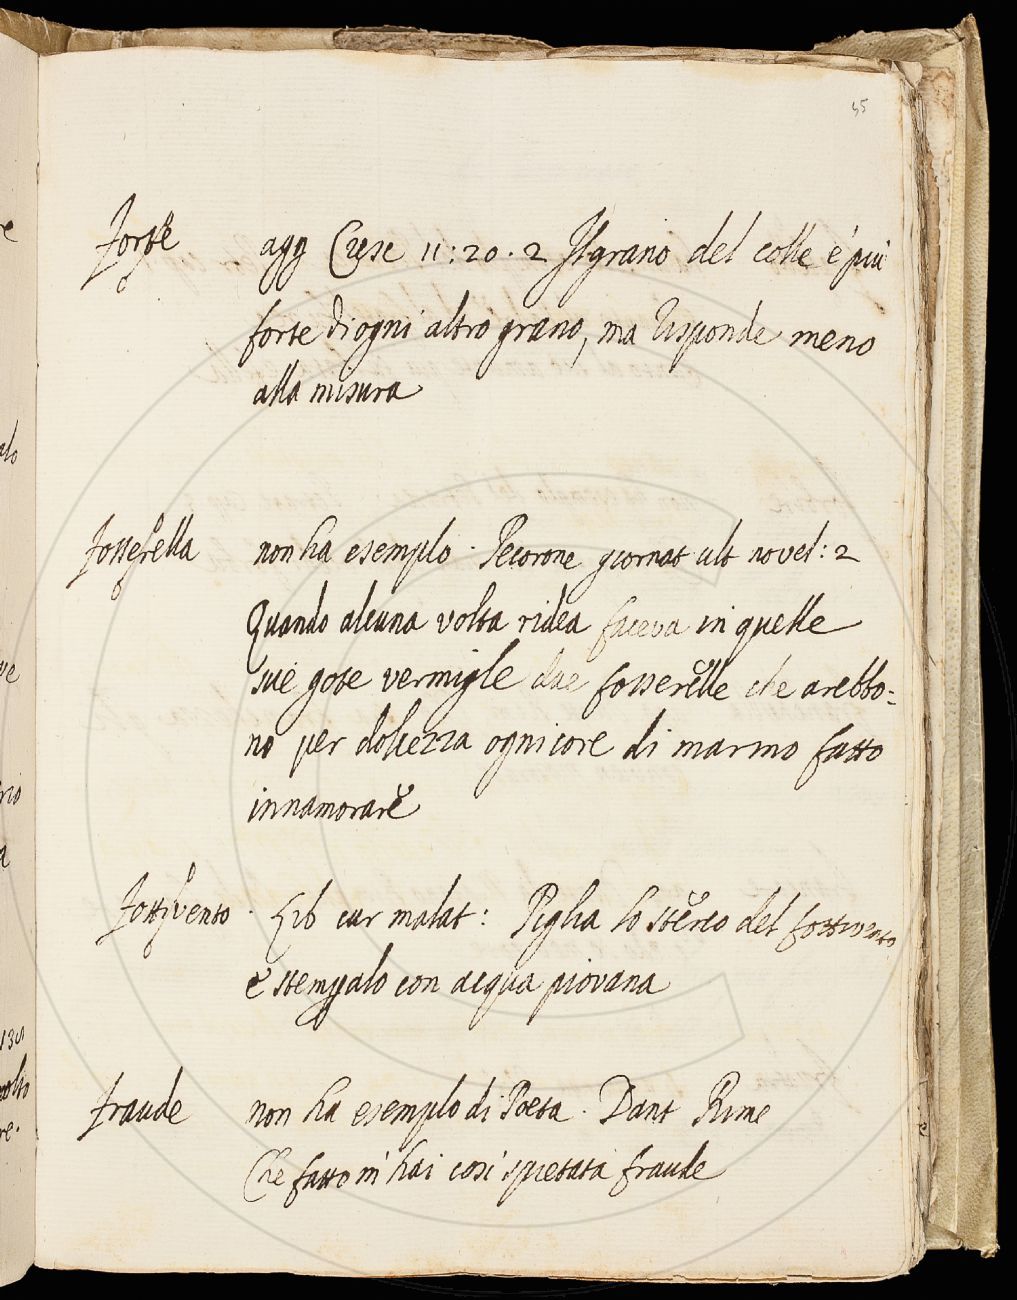 45
Forte agg Cresc 11:20.2 Il grano del colle è più
forte di ogni altro grano, ma risponde meno
alla misura
Fosserella non ha esemplo. Pecorone giornat ult novel: 2
Quando alcuna volta ridea faceva in quelle
sue gote vermigle due fosserelle che arebbo-
no per dolcezza ogni core di marmo fatto
innamorare
Fottivento. Lib cur malat: Piglia lo sterco del fottivento
e stempalo con acqua piovana
Fraude non ha esemplo di Poeta. Dant Rime
Che fatto m'hai così spietata fraude